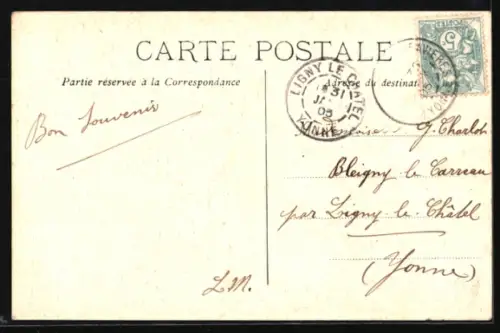 CARTE POSTALE
Partie réservée à la Correspondance
du destinat
Bon Souvenir
L.M.
LIGNY LE CHATEL
31
05
YONNE
5
G. Charlot
Bleigny le Carreau
par Ligny le Châtel
(Yonne)